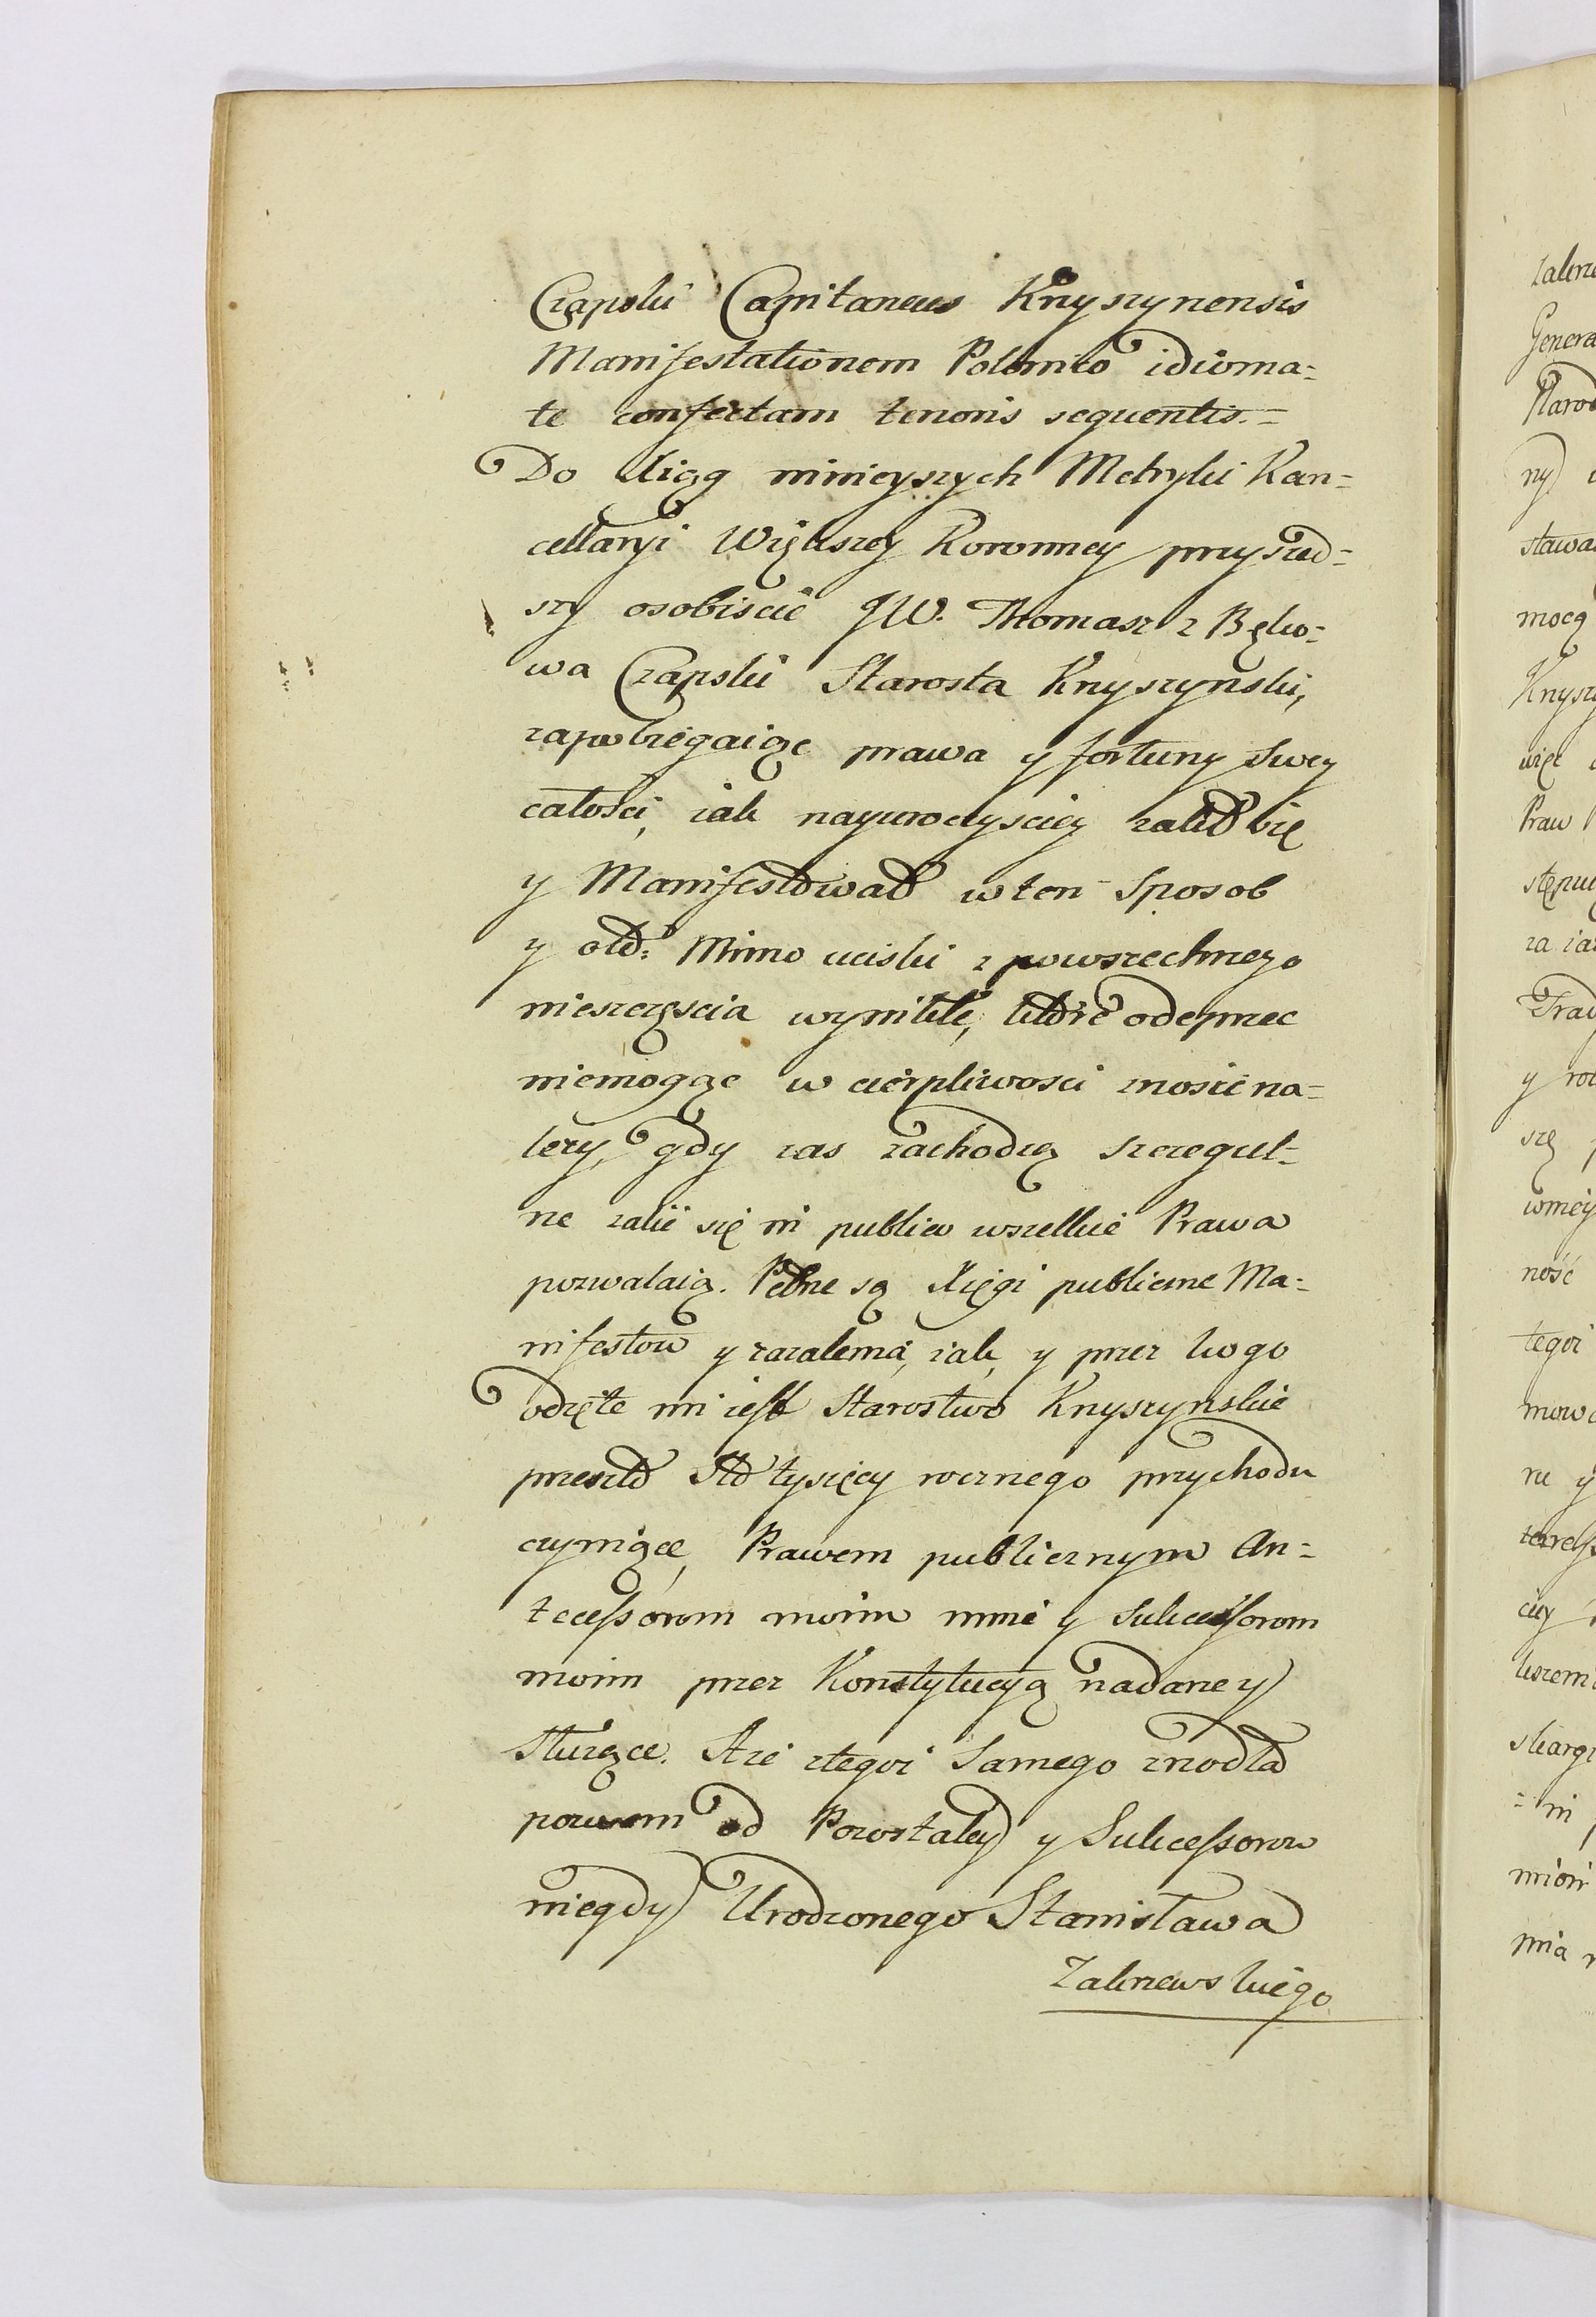 Czapski Capitaneus Knyszynensis
Manifestationem Polonico idioma=
te confectam tenoris sequentis.=
Do Xiąg mnieyszych Metryki Kan=
cellaryi Większey Koronney przyszed=
szy osobiscie JW. Thomasz z Bęko=
wa Czapski Starosta Knyszynski,
zapobiegaiąc prawa y fortuny swey
całości, iak nayuroczyściey żalił się
y Manifestował w ten sposob
y oto: Mimo uciski z powszechnego
nieszczęscia wynikłe, ktore odeprzec
niemogąc w cierpliwosci znosić na=
leży, gdy zas zachodzą szczegul=
ne żalić się in publico wszelkie Prawa
pozwalaią. Pełne są Xięgi publiczne Ma=
nifestow y zażalenia, iak, y przez kogo
odięte mi iest Starostwo Knyszynskie
przeszło sto tysięcy rocznego przychodu
czyniące, Prawem publicznym An=
tecessorom moim mnie y Sukcessorom
moim przez Konstytucyą nadane y
służące. Aże ztegoż samego zrodła
pozwem od Pozostałey y Sukcessorow
niegdy Urodzonego Stanisława
Zakrzewskiego
Zakrze
Genera
Narod
ny
stawa
mocą
Knysz
więc
Praw
stępu
za ia
Trad
y ro
szą
wmiey
ność
tegoż
mowa
ne y
teress
ciey
skargi